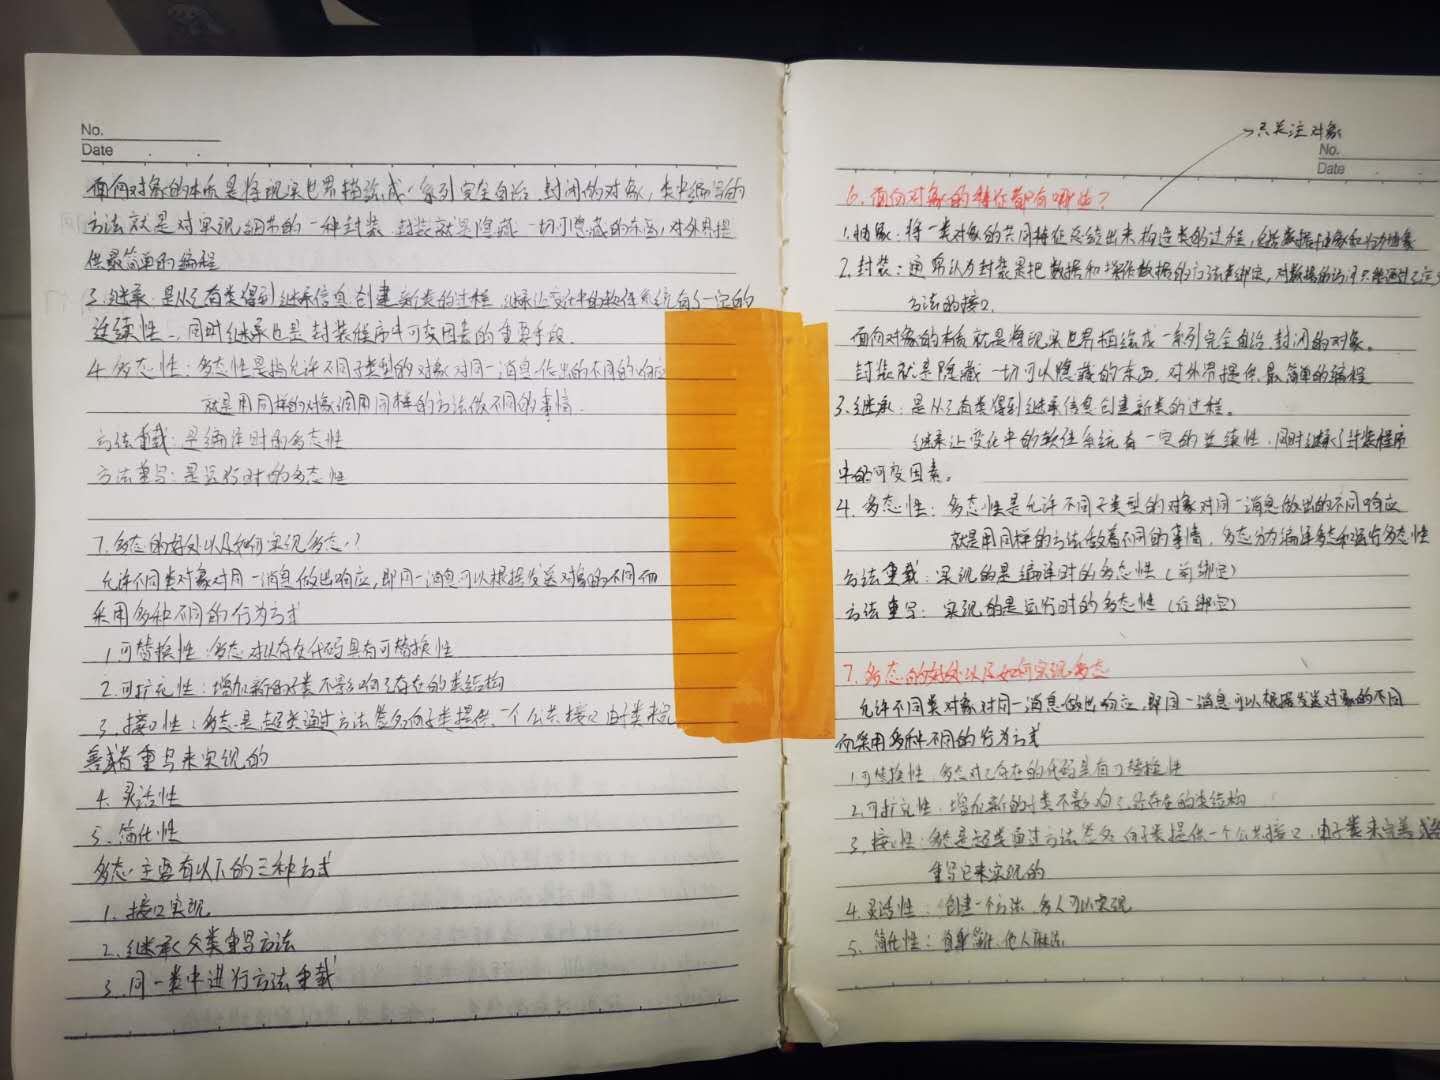 No.
Date
面向对象的本质是将现实世界描绘成一系列完全自治、封闭的对象,类中编写的
方法就是对实现细节的一种封装 封装就是隐藏一切可隐藏的东西,对外界提
供最简单的编程
3.继承:是从已有类得到继承信息创建新类的过程 继承让变化中的软件系统有了一定的
延续性、同时继承也是封装程序中可变因素的重要手段.
4.多态性:多态性是指允许不同子类型的对象对同一消息作出的不同的响应
就是用同样的对象调用同样的方法做不同的事情.
方法重载:是编译时的多态性
方法重写:是运行时的多态性
7.多态的好处以及如何实现多态?
允许不同类对象对同一消息做出响应,即同一消息可以根据发送对象的不同而
采用多种不同的行为方式
1.可替换性:多态对以存在代码具有可替换性
2.可扩充性:增加新的子类不影响已存在的类结构
3.接口性:多态是超类通过方法签名向子类提供一个公共接口 由子类来完
善或者重写来实现的
4.灵活性
5.简化性
多态主要有以下的三种方式
1.接口实现
2.继承父类重写方法
3.同一类中进行方法重载
只关注对象
No.
Date
6.面向对象的特征都有哪些?
1.抽象:将一类对象的共同特征总结出来构造类的过程,包括数据抽象和行为抽象
2.封装:通常认为封装是把数据和操作数据的方法类绑定,对数据的访问只能通过已定义
方法的接口.
面向对象的本质就是将现实世界描绘成一系列完全自治、封闭的对象。
封装就是隐藏一切可以隐藏的东西,对外界提供最简单的编程
3.继承:是从已有类得到继承信息创建新类的过程。
继承让变化中的软件系统有一定的延续性,同时继承了封装程序
中的可变因素。
4.多态性:多态性是允许不同子类型的对象对同一消息做出的不同响应
就是用同样的方法做着不同的事情,多态分为编译多态和运行多态性
方法重载:实现的是编译时的多态性(前绑定)
方法重写:实现的是运行时的多态性(后绑定)
7.多态的好处以及如何实现多态
允许不同类对象对同一消息做出响应,即同一消息可以根据发送对象的不同
而采用多种不同的行为方式
1.可替换性:多态对已存在的代码具有可替换性
2.可扩充性:增加新的子类不影响已经存在的类结构
3.接口性:多态是超类通过方法签名 向子类提供一个公共接口,由子类来完善或者
重写它来实现的
4.灵活性:创建一个方法 多人可以实现
5.简化性:自身简化 他人